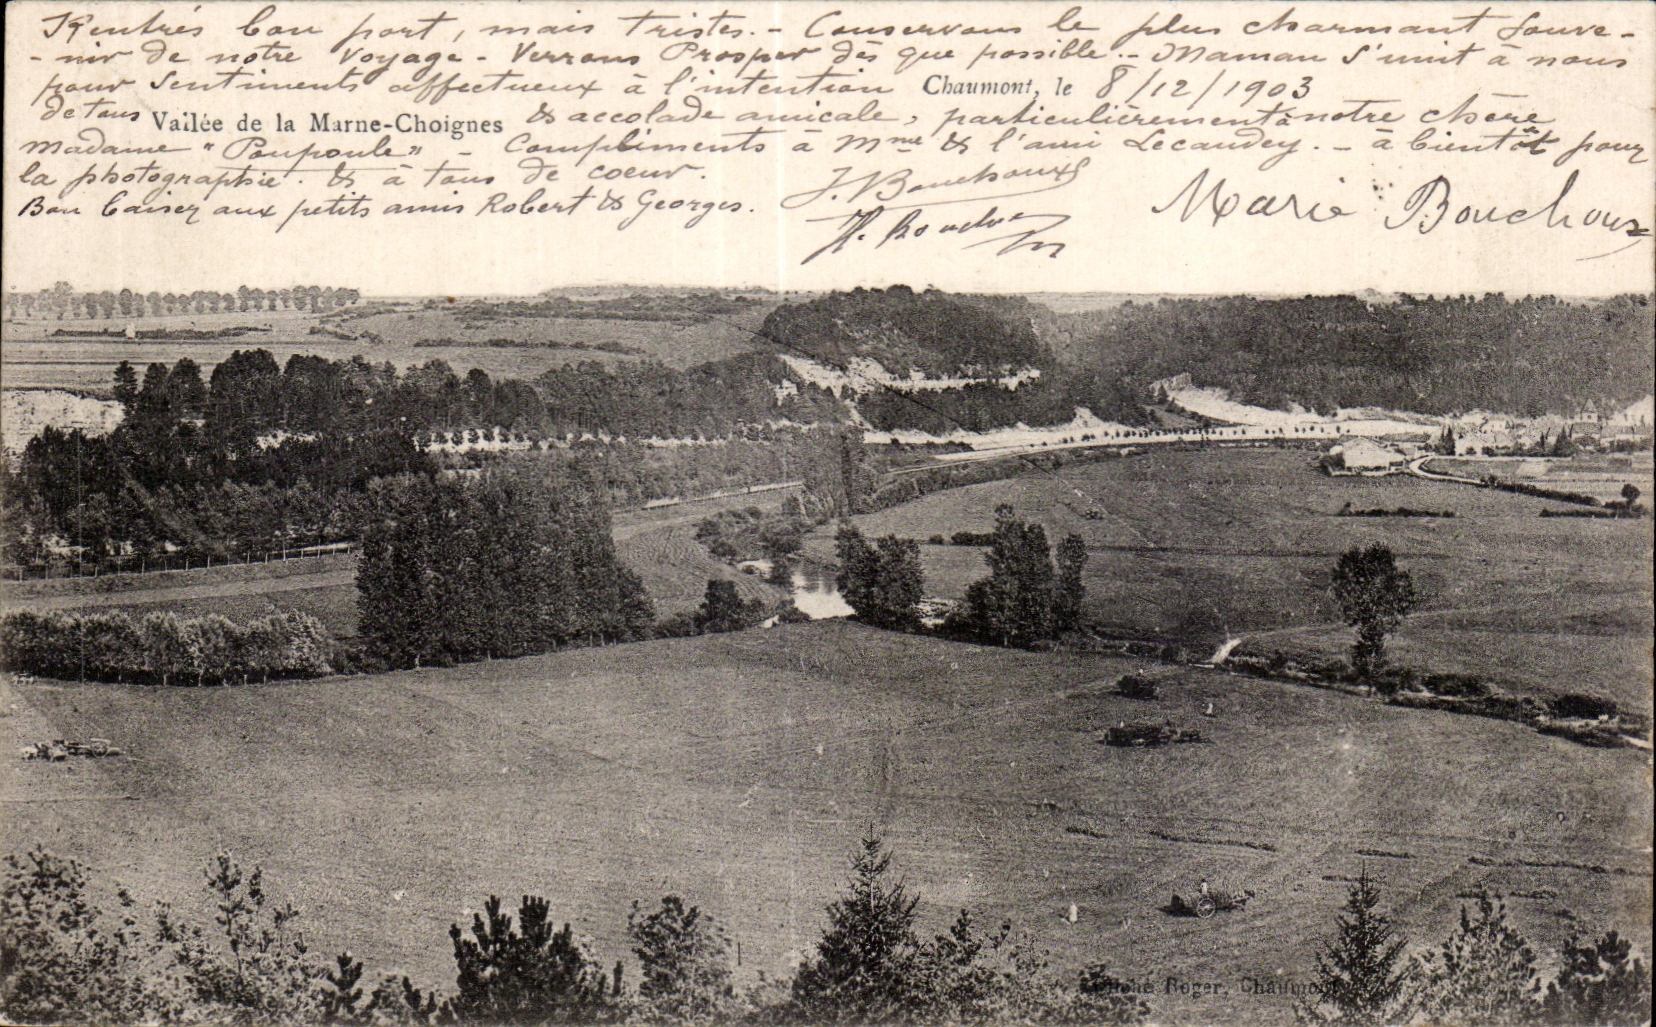 Rentrés bon port, mais tristes. - Conservons le plus charmant souve-
-nir de notre voyage - Verrons Prosper dès que possible. - Maman s'unit à nous
pour sentiments affectueux à l'intention Chaumont, le 8/12/1903
de tous Vallée de la Marne-Choignes & accolade amicale, particulièrement à notre chère
madame "Poupoule" - Compliments à Mme & l'ami Lecaudey. - à bientôt pour
la photographie. & à tous de coeur.
Bon baiser aux petits amis Robert & Georges. J. Bouchoux
H. Bouchoux Marie Bouchoux
Cliché Roger, Chaumont